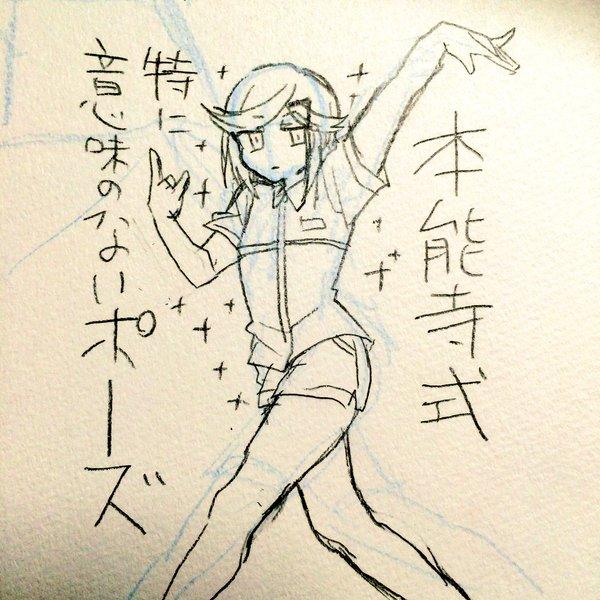 本能寺式
特に
意味のないポーズ